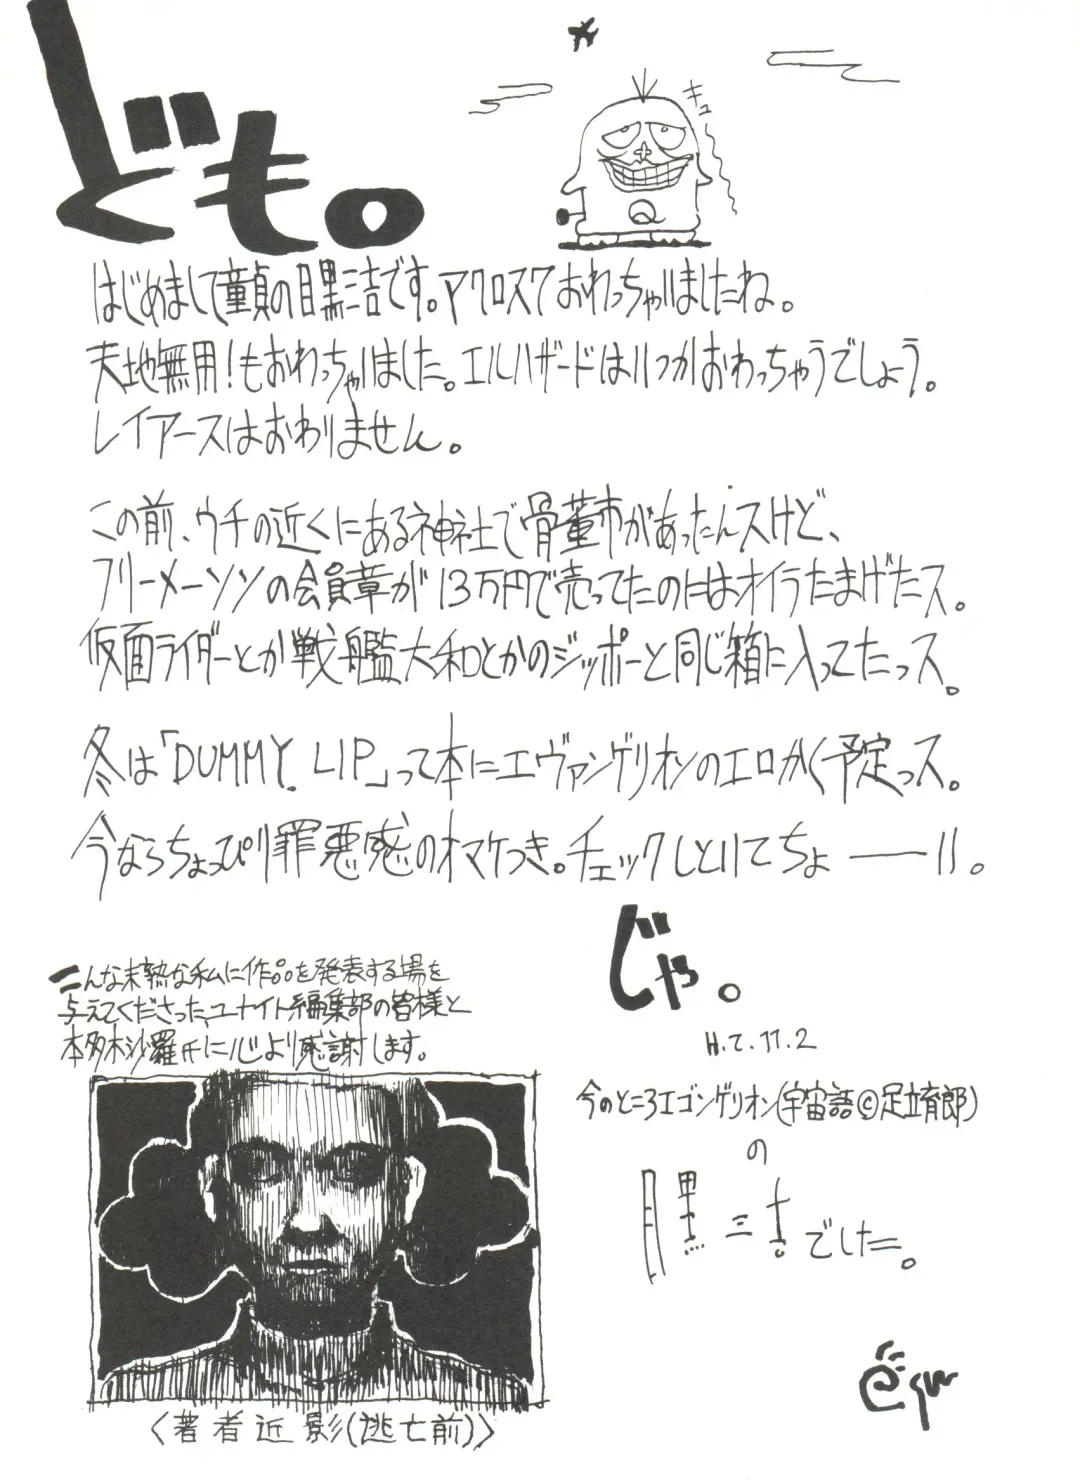 ども。
キュー
はじめまして童貞の目黒三吉です。アクロスクおわっちゃいましたね。
天地無用!もおわっちゃいました。エルハザードはいつかおわっちゃうでしょう。
レイアースはおわりません。
この前、ウチの近くにある神社で骨董市があったんスけど、
フリーメーソンの会員章が13万円で売ってたのにはオイラたまげたス。
仮面ライダーとか戦艦大和とかのジッポーと同じ箱に入ってたっス。
冬は「DUMMY. LIP」って本にエヴァンゲリオンのエロかく予定っス。
今ならちょっぴり罪悪感のオマケつき。チェックしといてちょーーい。
じゃ。
H.7.11.2
こんな未熟な私に作品を発表する場を
与えてくださった、ユナイト編集部の皆様と
本多木沙羅氏に心より感謝します。
今のところエゴンゲリオン(宇宙語©足立育郎)
の
目黒三吉でした。
〈著者近影(逃亡前)〉